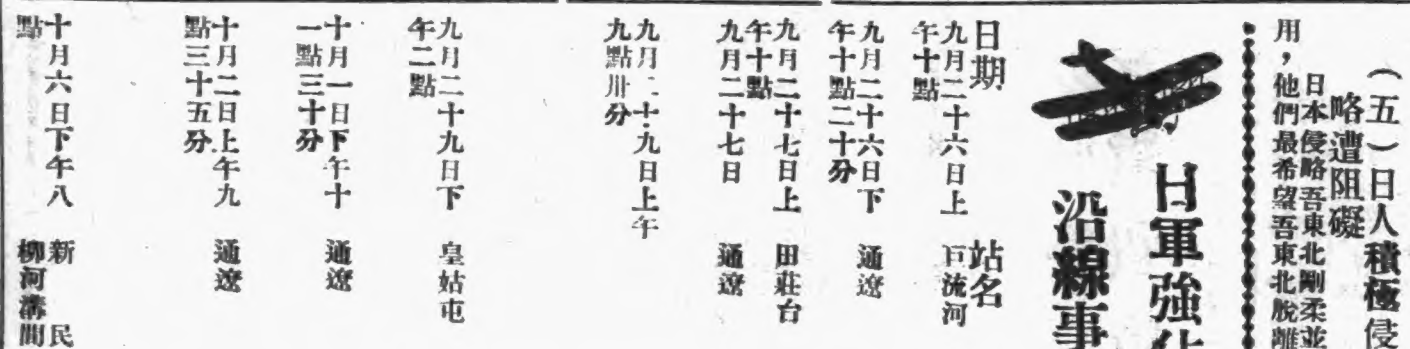 （五）日人積極侵
略遭阻礙
日本侵略吾東北剛柔並
用，他們最希望吾東北脫離
日軍強
沿線事
日期　站名
九月二十六日上午十點　巨流河
九月二十六日下午十點二十分　通遼
九月二十七日上午十點　田莊台
九月二十七日　通遼
九月二十九日上午九點卅分
九月二十九日下午二點　皇姑屯
十月一日下午十一點三十分　通遼
十月二日上午九點三十五分　通遼
十月六日下午八點　新民柳河溝間